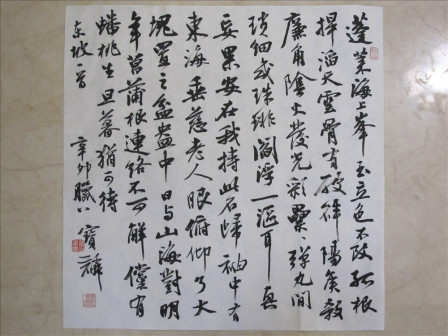 蓬莱海上峯玉立色不改孤根
捍滔天雲骨有破碎陽侯殺
廉角陰火發光彩纍纍彈丸間
瑣細或珠琲閻浮一漚耳真
妄果安在我持此石歸袖中有
東海垂慈老人眼俯仰了大
塊置之盆盎中日與山海對明
年菖蒲根連絡不可解儻有
蟠桃生旦暮猶可待
東坡一首 辛卯臘八 寶麟